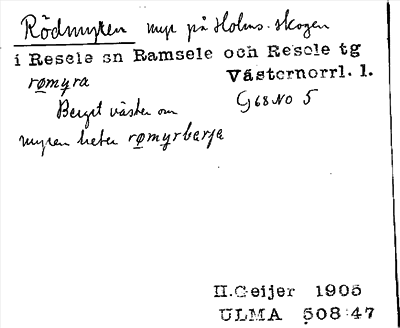 Rödmyren myr på Holms-skogen
i Resele sn Ramsele och Resele tg
Västernorrl. l.
rømyra
G68NO 5
Berget väster om
myren heter rømyrbarja
H.Geijer 1905
ULMA 508:47